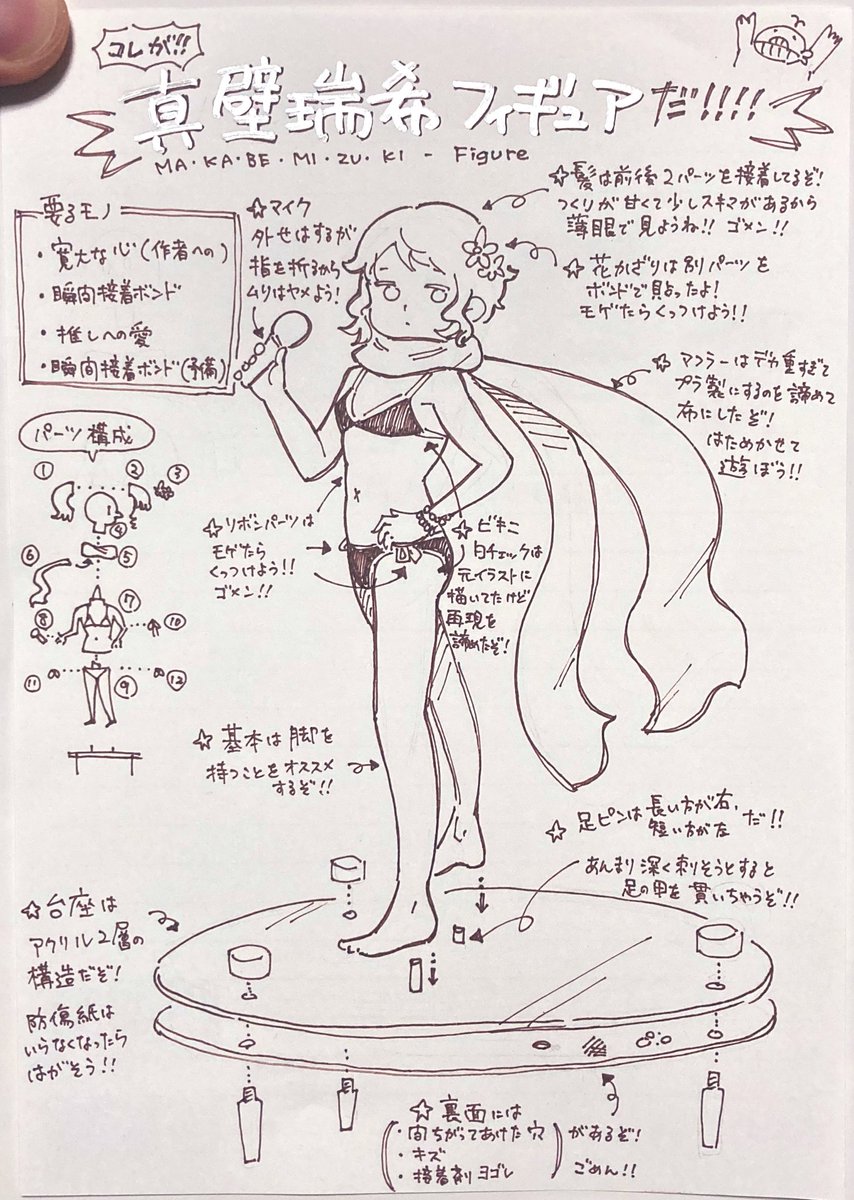 コレが!!
真壁瑞希フィギュアだ!!!!
MA・KA・BE・MI・ZU・KI - Figure
要るモノ
・寛大な心(作者への)
・瞬間接着ボンド
・推しへの愛
・瞬間接着ボンド(予備)
☆マイク
外せはするが
指を折るから
ムリはヤメよう!
☆髪は前後2パーツを接着してるぞ!
つくりが甘くて少しスキマがあるから
薄眼で見ようね!! ゴメン!!
☆花かざりは別パーツを
ボンドで貼ったよ!
モゲたらくっつけよう!!
☆マフラーはデカ重すぎて
プラ製にするのを諦めて
布にしたぞ!
はためかせて
遊ぼう!!
パーツ構成
① ② ③
④
⑥ ⑤
⑦
⑧ ⑩
⑪ ⑨ ⑫
☆リボンパーツは
モゲたら
くっつけよう!!
ゴメン!!
☆ビキニ
白チェックは
元イラストに
描いてたけど
再現を
諦めたぞ!
☆基本は脚を
持つことをオススメ
するぞ!!
☆足ピンは長い方が右、
短い方が左だ!!
あんまり深く刺そうとすると
足の甲を貫いちゃうぞ!!
☆台座は
アクリル2層の
構造だぞ!
防傷紙は
いらなくなったら
はがそう!!
☆裏面には
・間ちがってあけた穴
・キズ
・接着剤ヨゴレ
があるぞ!
ごめん!!